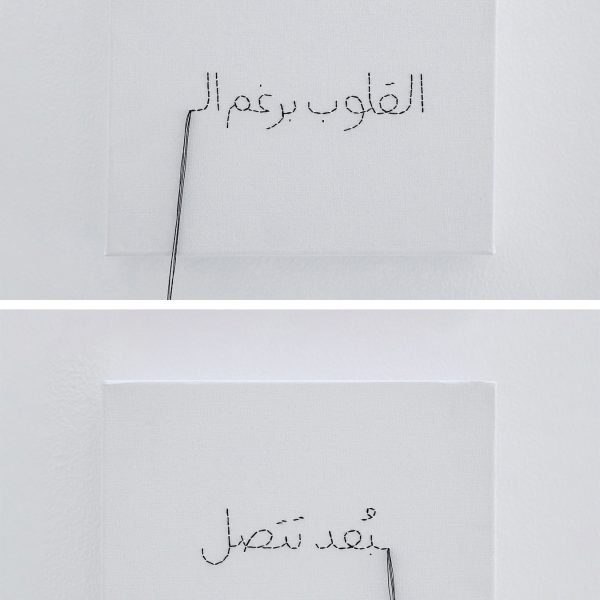 القلوب برغم الـ
بُعد تَتَصل